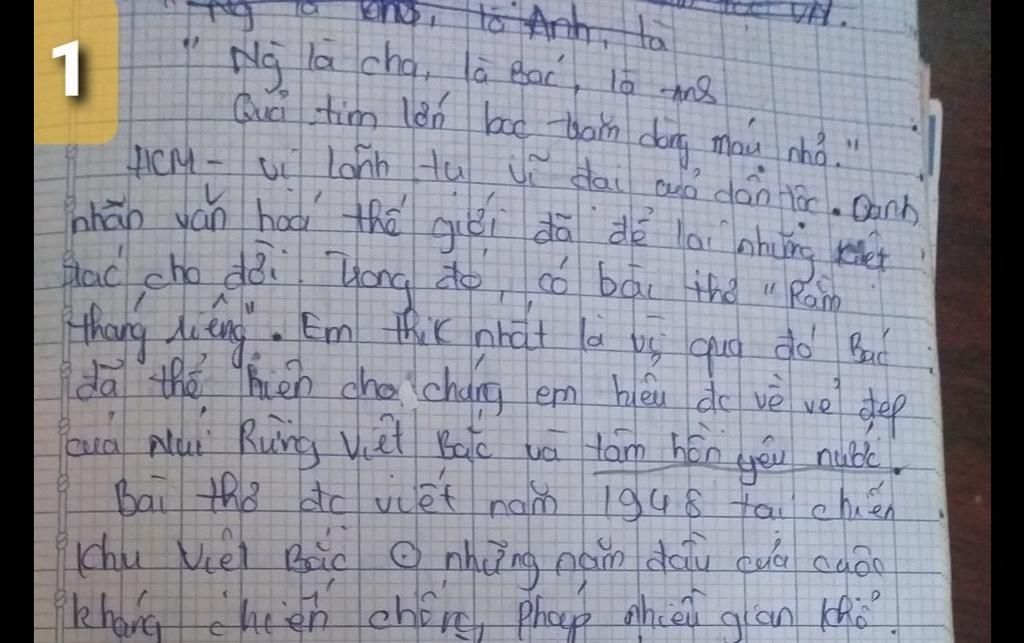 1
là Anh, là
" Ng là cha, là Bác, là Anh
Quả tim lớn bọc trăm dòng máu nhỏ."
HCM - vị lãnh tụ vĩ đại của dân tộc. Danh
nhân văn hoá thế giới đã để lại những kiệt
tác cho đời. Trong đó, có bài thơ "Rằm
tháng riêng". Em thik nhất là vì qua đó Bác
đã thể hiện cho chúng em hiểu đc về vẻ đẹp
của Núi Rừng Việt Bắc và tâm hồn yêu nước.
Bài thơ đc viết năm 1948 tại chiến
khu Việt Bắc ở những năm đầu của cuộc
kháng chiến chống Pháp nhiều gian khổ.